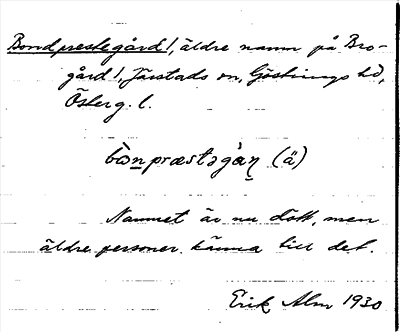 Bondprestegård 1, äldre namn på Bro-
gård 1, Järstads sn, Göstrings hd,
Österg. l.
bònpræstəgàɳ (ä)
Namnet är nu dött, men
äldre personer känna till det.
Erik Alm 1930